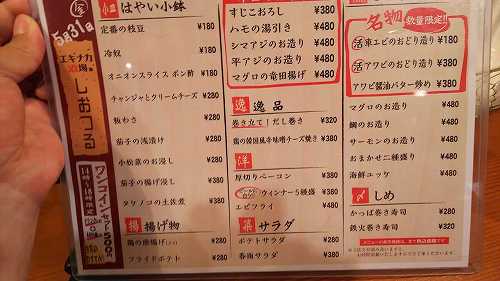 5月31日
エキナカ
酒場
しおつる
ワンコインセット500円
小皿 はやい小鉢
定番の枝豆 ¥180
冷奴 ¥180
オニオンスライス ポン酢 ¥180
チャンジャとクリームチーズ ¥280
板わさ ¥280
茄子の浅漬け ¥280
小松菜のお浸し ¥280
茄子の揚げ浸し ¥380
タケノコの土佐煮 ¥380
揚 揚げ物
鶏の唐揚げ ¥280
フライドポテト ¥280
すじこおろし ¥380
ハモの湯引き ¥480
シマアジのお造り ¥480
平アジのお造り ¥480
マグロの竜田揚げ ¥480
逸 逸品
巻き立て!だし巻き ¥320
鶏の韓国風辛味噌チーズ焼き ¥380
洋
厚切りベーコン ¥380
ウィンナー5種盛 ¥380
エビフライ ¥480
菜 サラダ
ポテトサラダ ¥280
春雨サラダ ¥380
名物 数量限定!!
活 車エビのおどり造り ¥180
活 アワビのおどり造り ¥380
アワビ醤油バター炒め ¥380
マグロのお造り ¥480
鯛のお造り ¥480
サーモンのお造り ¥480
おまかせ二種盛り ¥480
海鮮エッケ ¥480
〆 しめ
かっぱ巻き寿司 ¥280
鉄火巻き寿司 ¥320